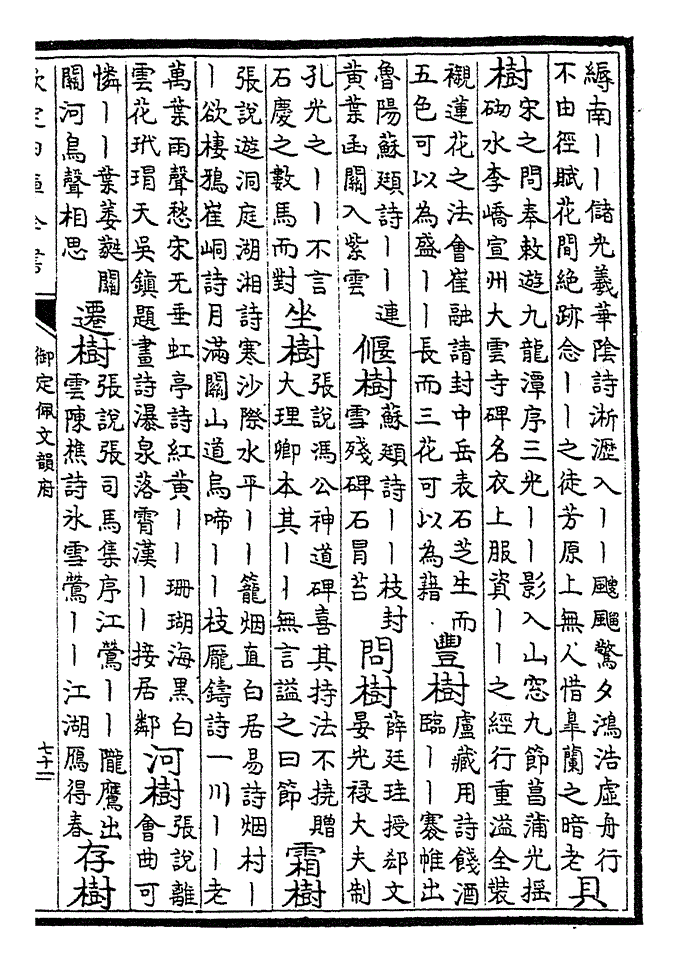 縟南丨丨儲光羲華陰詩淅瀝入丨丨颼飀驚夕鴻浩虛舟行
不由徑賦花間絶跡念丨丨之徒芳原上無人惜皐蘭之暗老
貝
樹
宋之問奉敕遊九龍潭序三光丨丨影入山窓九節菖蒲光揺
砌水李嶠宣州大雲寺碑名衣上服資丨丨之經行重溢全裝
襯蓮花之法會崔融請封中岳表石芝生而
五色可以為盛丨丨長而三花可以為藉
豐樹
盧藏用詩餞酒
臨丨丨褰帷出
魯陽蘇頲詩丨丨連
黄葉函關入紫雲
偃樹
蘇頲詩丨丨枝封
雪殘碑石冒苔
問樹
薛廷珪授郄文
晏光禄大夫制
孔光之丨丨不言
石慶之數馬而對
坐樹
張說馮公神道碑喜其持法不撓贈
大理卿本其丨丨無言謚之曰節
霜樹
張說遊洞庭湖湘詩寒沙際水平丨丨籠烟直白居易詩烟村丨
丨欲棲鴉崔峒詩月滿關山道烏啼丨丨枝龎鑄詩一川丨丨老
萬葉雨聲愁宋无垂虹亭詩紅黄丨丨珊瑚海黑白
雲花玳瑁天吳鎮題畫詩瀑泉落霄漢丨丨接居鄰
河樹
張說離
會曲可
憐丨丨葉萎蕤關
關河鳥聲相思
遷樹
張說張司馬集序江鶯丨丨隴鷹出
雲陳樵詩氷雪鶯丨丨江湖鴈得春
存樹
欽定四庫全書
御定佩文韻府
七十二